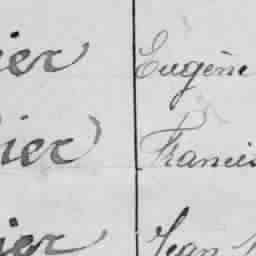 ier Eugène
ier Francis
ier Jean